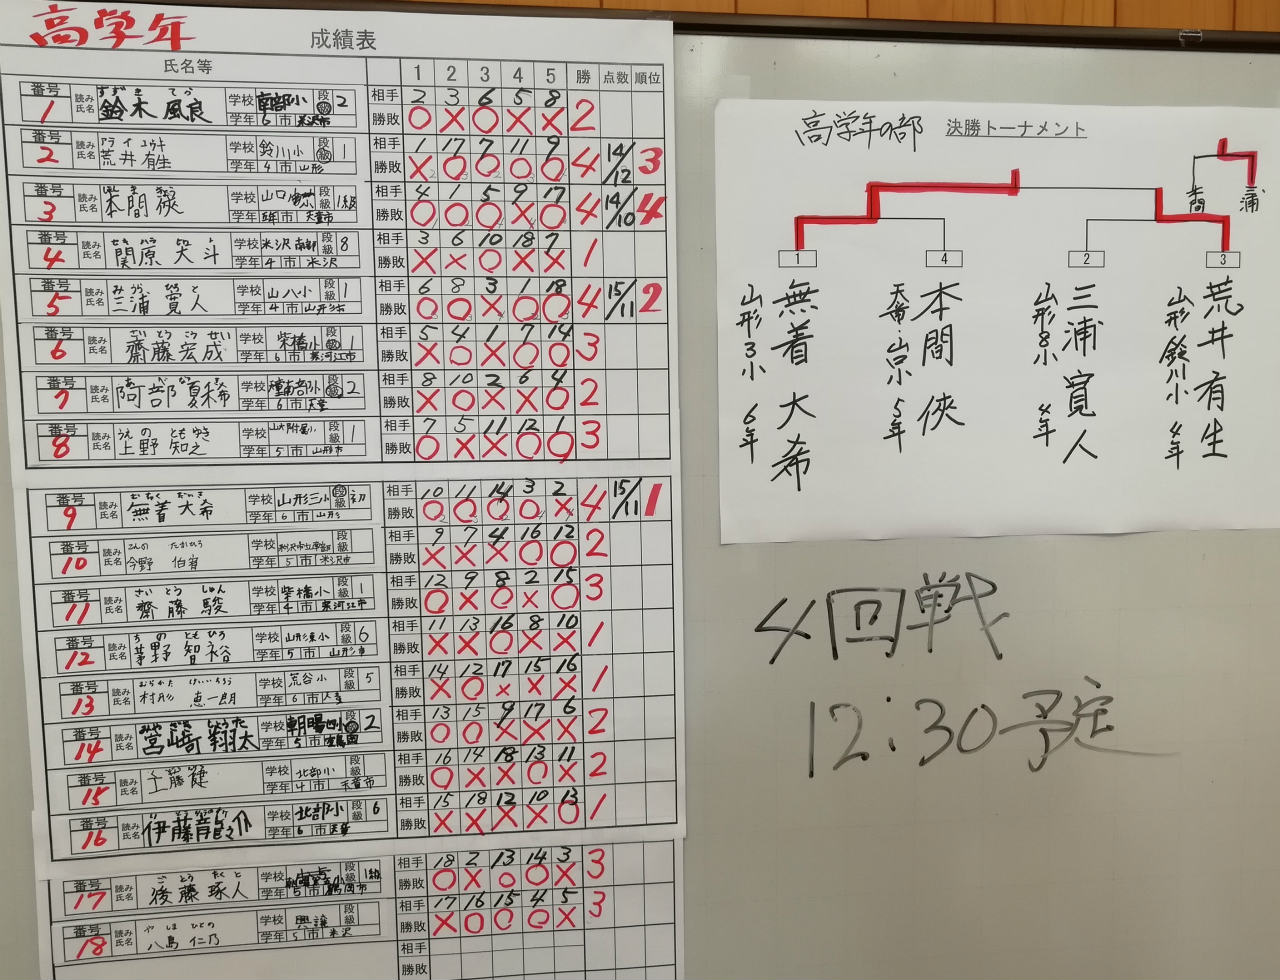 高学年
成績表
氏名等 1 2 3 4 5 勝 点数 順位
番号 1 読み氏名 すずき 鈴木 風良 学校 南部小 段級 2 相手 2 3 6 5 8
学年 6 市 米沢市 勝敗 ○ × ○ × × 2
番号 2 読み氏名 アライ ユウキ 荒井有生 学校 鈴川小 段級 1 相手 1 17 7 11 9
学年 4 市 山形 勝敗 × ○ ○ ○ ○ 4 14/12 3
番号 3 読み氏名 ほんま きょう 本間 俠 学校 山口 段級 1級 相手 4 1 5 9 17
学年 5年 市 天童市 勝敗 ○ ○ ○ × ○ 4 14/10 4
番号 4 読み氏名 せきはら 関原 大斗 学校 米沢南部 段級 8 相手 3 6 10 18 7
学年 4 市 米沢 勝敗 × × ○ × × 1
番号 5 読み氏名 みうら ひろと 三浦 寛人 学校 山八小 段級 1 相手 6 8 3 1 18
学年 4 市 山形市 勝敗 ○ ○ × ○ ○ 4 15/11 2
番号 6 読み氏名 さいとうこうせい 齋藤宏成 学校 柴橋小 段級 1 相手 5 4 1 7 14
学年 6 市 寒河江市 勝敗 × ○ × ○ ○ 3
番号 7 読み氏名 あべ なつき 阿部夏稀 学校 段級 2 相手 8 10 2 6 4
学年 6 市 天童 勝敗 × ○ × × ○ 2
番号 8 読み氏名 うえの ともゆき 上野 知之 学校 山大附属小 段級 1 相手 7 5 11 12 1
学年 5 市 山形市 勝敗 ○ × × ○ ○ 3
番号 9 読み氏名 むちゃく だいき 無着 大希 学校 山形三小 段級 初 相手 10 11 14 3 2
学年 6 市 山形 勝敗 ○ ○ ○ ○ × 4 15/11 1
番号 10 読み氏名 こんの たかひろ 今野 学校 段級 相手 9 7 4 16 12
学年 5 市 米沢市 勝敗 × × × ○ ○ 2
番号 11 読み氏名 さいとう しゅん 齋藤 駿 学校 柴橋小 段級 1 相手 12 9 8 2 15
学年 4 市 寒河江市 勝敗 ○ × ○ × ○ 3
番号 12 読み氏名 ちの ともひろ 茅野 智裕 学校 山形東小 段級 6 相手 11 13 16 8 10
学年 5 市 山形市 勝敗 × × ○ × × 1
番号 13 読み氏名 むらかた けいいちろう 村形 恵一朗 学校 荒谷小 段級 5 相手 14 12 17 15 16
学年 6 市 天童 勝敗 × ○ × × × 1
番号 14 読み氏名 みやざき しょうた 宮崎 翔太 学校 朝暘四小 段級 2 相手 13 15 9 17 6
学年 5 市 鶴岡 勝敗 ○ ○ × × × 2
番号 15 読み氏名 工藤 健 学校 北部小 段級 相手 16 14 18 13 11
学年 4 市 天童市 勝敗 ○ × × ○ × 2
番号 16 読み氏名 伊藤龍之介 学校 北部小 段級 6 相手 15 18 12 10 13
学年 6 市 天童 勝敗 × × × × ○ 1
番号 17 読み氏名 ごとう たくと 後藤 琢人 学校 段級 1級 相手 18 2 13 14 3
学年 5 市 鶴岡市 勝敗 ○ × ○ ○ × 3
番号 18 読み氏名 やしま ひとの 八島 仁乃 学校 興譲 段級 相手 17 16 15 4 5
学年 5 市 米沢 勝敗 × ○ ○ ○ × 3
相手
勝敗
高学年の部 決勝トーナメント
本間 三浦
1 4 2 3
無着大希
山形3小 6年
本間俠
天童・山口小 5年
三浦寛人
山形8小 4年
荒井有生
山形鈴川小 4年
4回戦
12:30予定